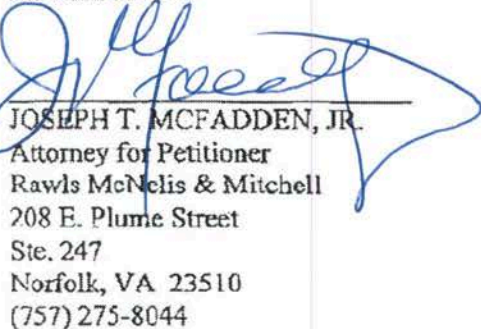 JOSEPH T. MCFADDEN, JR.
Attorney for Petitioner
Rawls McNelis & Mitchell
208 E. Plume Street
Ste. 247
Norfolk, VA 23510
(757) 275-8044